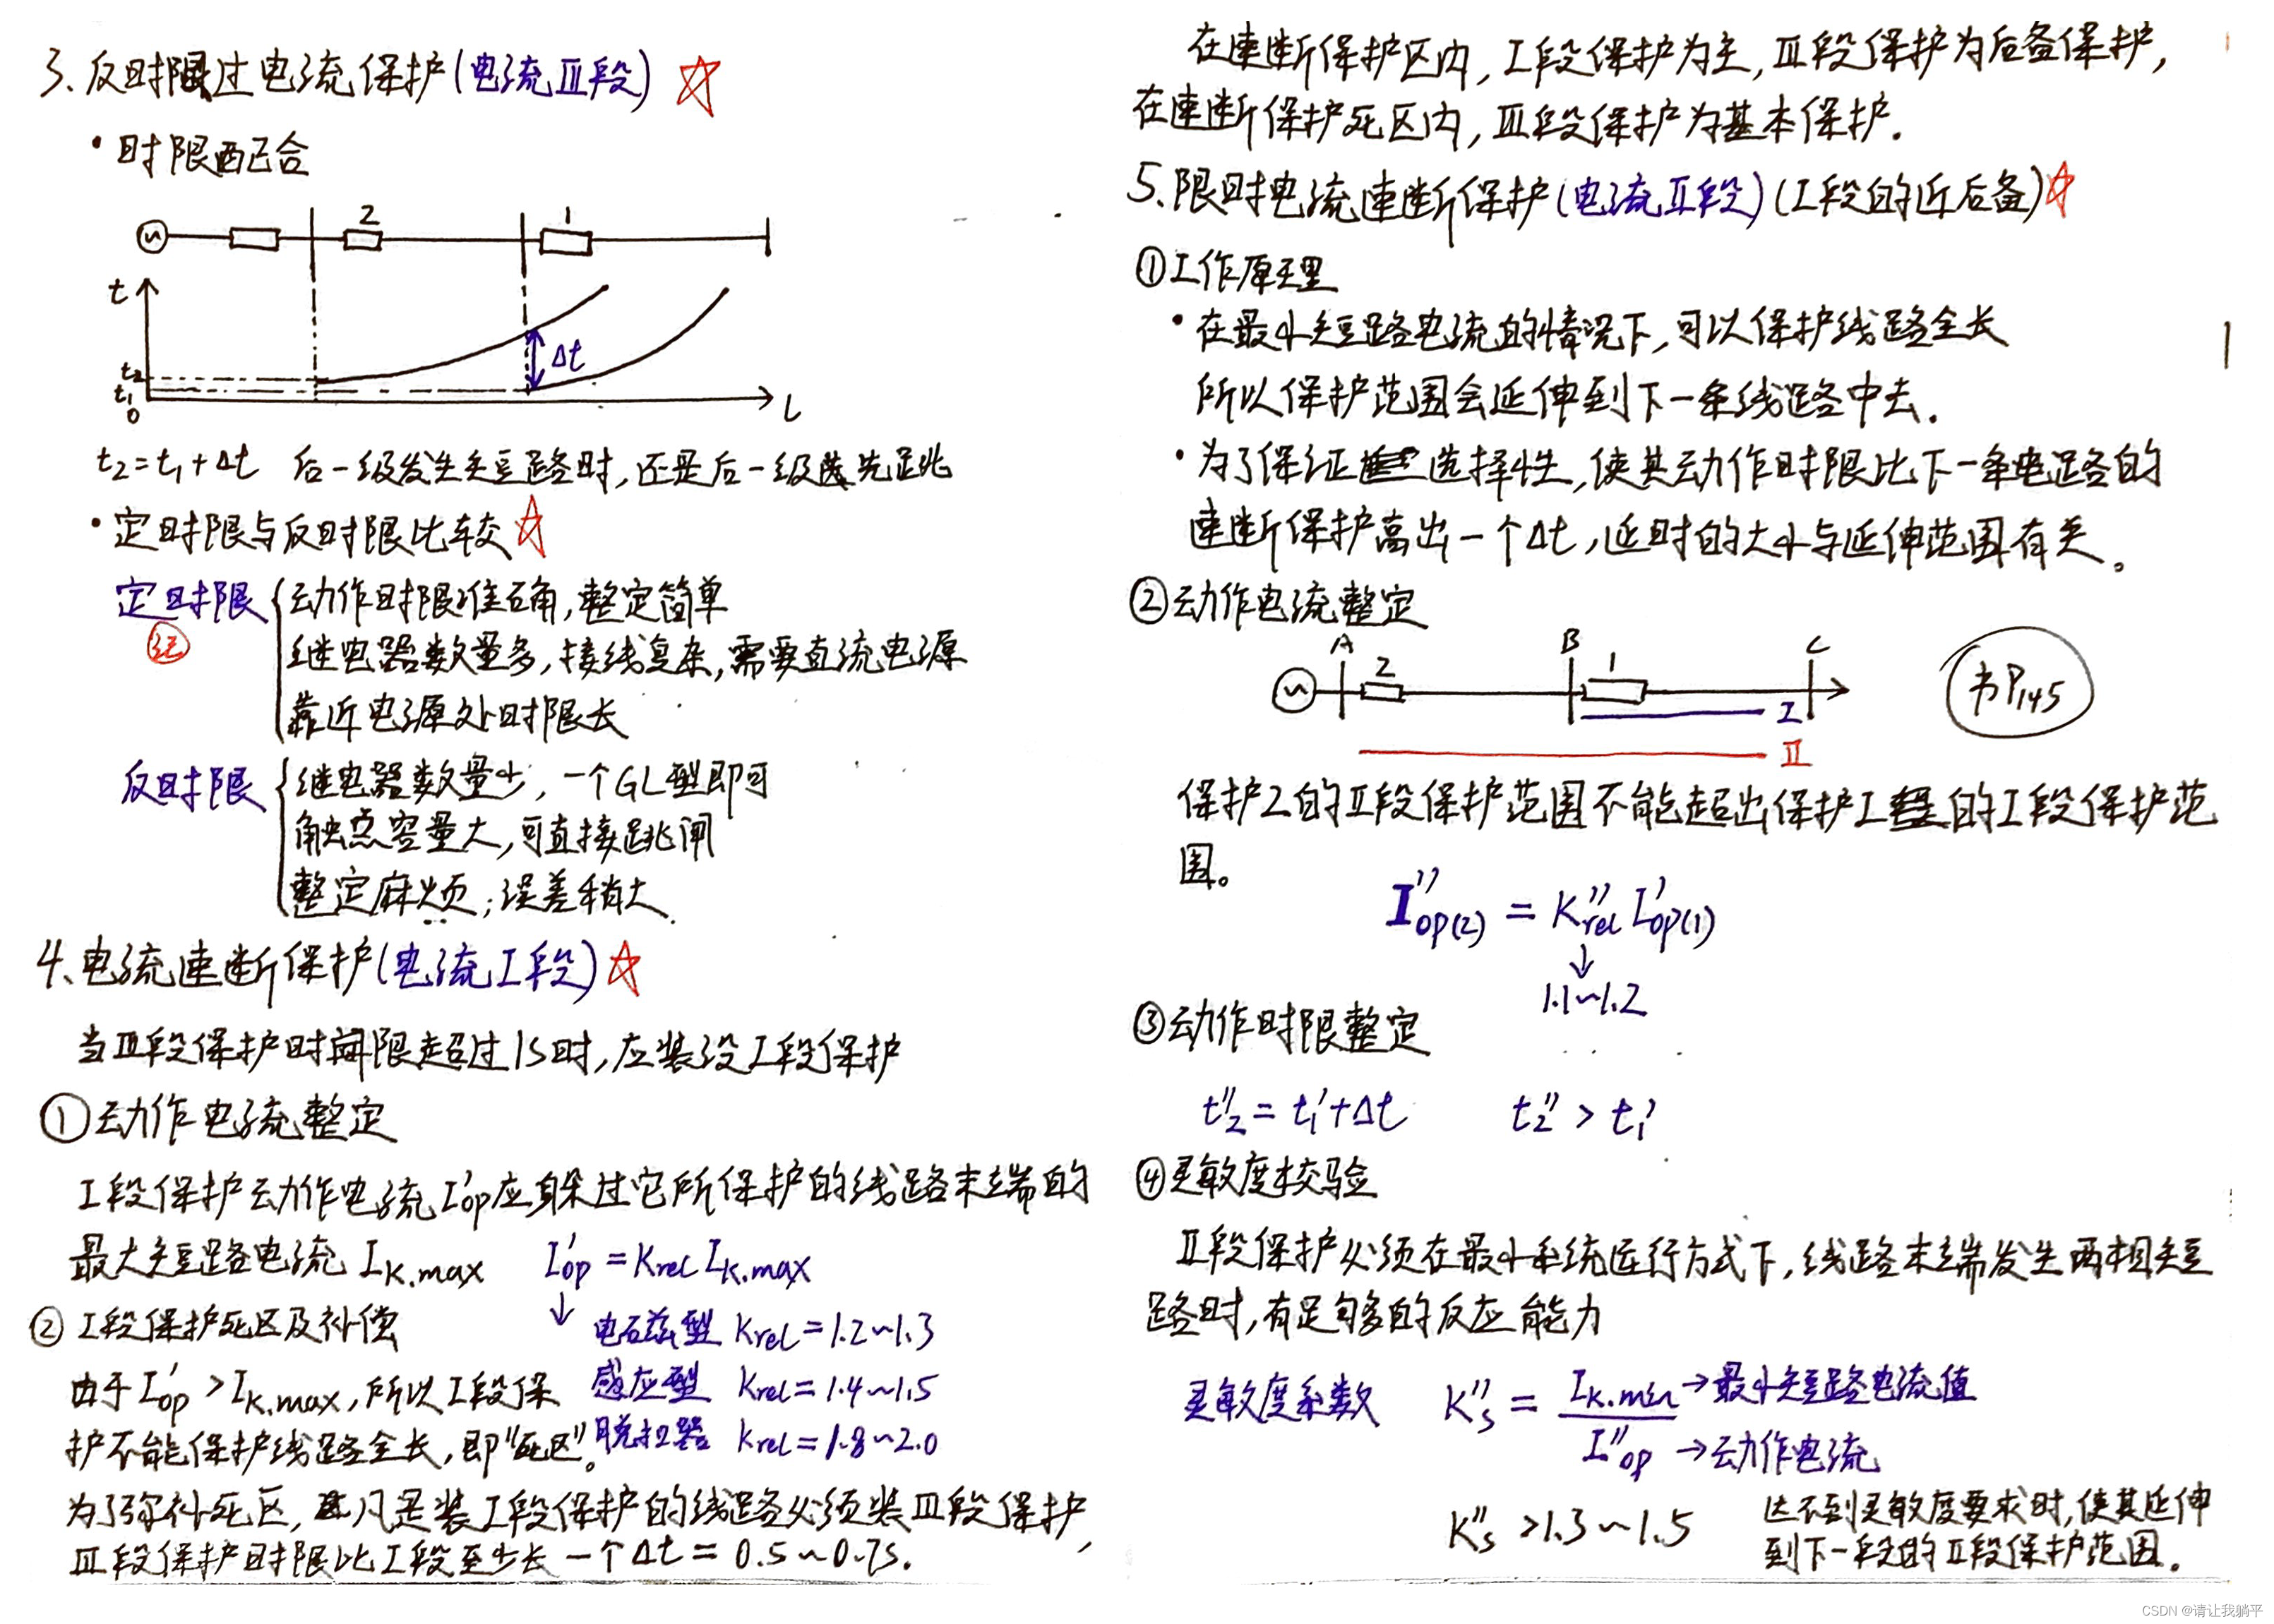 3、反时限过电流保护(电流Ⅲ段)
·时限配合
2
1
t
Δt
t₂
t₁
0
L
t₂=t₁+Δt 后一级发生短路时,还是后一级先跳
·定时限与反时限比较
定时限
动作时限准确,整定简单
继电器数量多,接线复杂,需要直流电源
靠近电源处时限长
反时限
继电器数量少,一个GL型即可
触点容量大,可直接跳闸
整定麻烦;误差稍大
4、电流速断保护(电流Ⅰ段)
当Ⅲ段保护时间限超过1s时,应装设Ⅰ段保护
①动作电流整定
Ⅰ段保护动作电流I'op应躲过它所保护的线路末端的
最大短路电流 Ik.max I'op=Krel Ik.max
↓
电磁型 Krel=1.2~1.3
感应型 Krel=1.4~1.5
脱扣器 Krel=1.8~2.0
② Ⅰ段保护死区及补偿
由于I'op>Ik.max,所以Ⅰ段保
护不能保护线路全长,即"死区"。
为了弥补死区,凡是装Ⅰ段保护的线路必须装Ⅲ段保护,
Ⅲ段保护时限比Ⅰ段至少长一个Δt=0.5~0.7s.
在速断保护区内,Ⅰ段保护为主,Ⅲ段保护为后备保护,
在速断保护死区内,Ⅲ段保护为基本保护.
5、限时电流速断保护(电流Ⅱ段)(Ⅰ段的近后备)
①工作原理
·在最小短路电流的情况下,可以保护线路全长
所以保护范围会延伸到下一条线路中去.
·为了保证选择性,使其动作时限比下一条电路的
速断保护高出一个Δt,延时的大小与延伸范围有关。
②动作电流整定
A B C
2 1
Ⅰ
Ⅱ
书P145
保护2的Ⅱ段保护范围不能超出保护1的Ⅰ段保护范
围。
I''op(2)=K''rel I'op(1)
↓
1.1~1.2
③动作时限整定
t''₂=t'₁+Δt t₂''>t₁'
④灵敏度校验
Ⅱ段保护必须在最小系统运行方式下,线路末端发生两相短
路时,有足够多的反应能力
灵敏度系数 K''s=Ik.min/I''op
→最小短路电流值
→动作电流
K''s>1.3~1.5
达不到灵敏度要求时,使其延伸
到下一段的Ⅱ段保护范围.
CSDN @请让我躺平